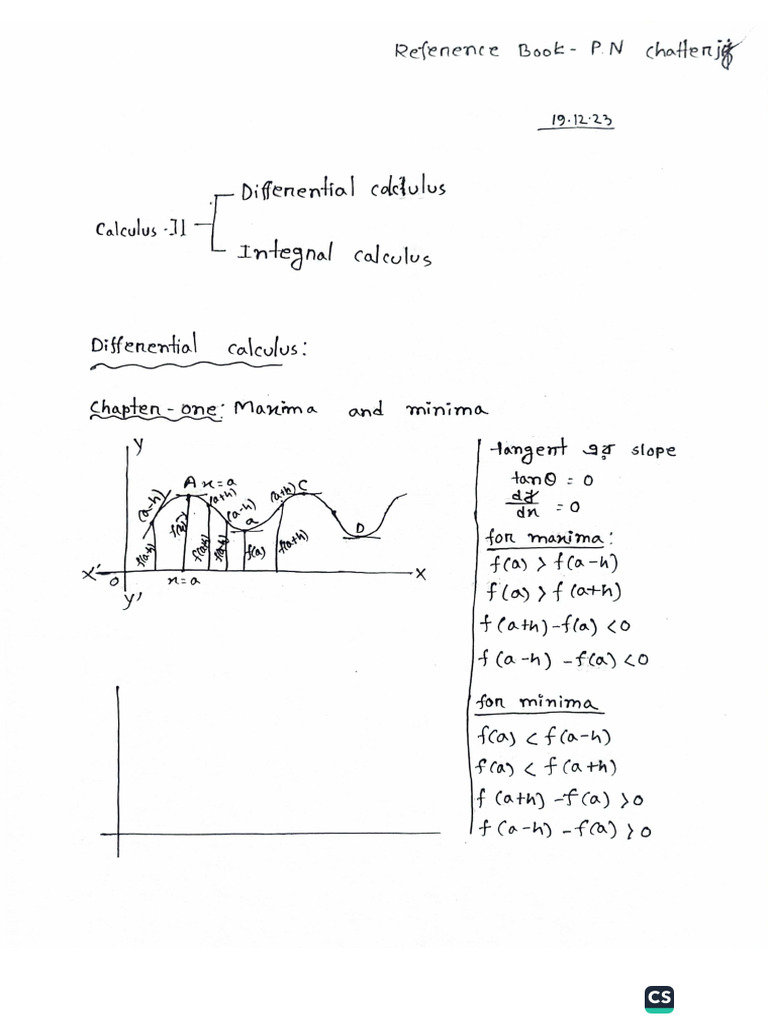 Reference Book - P.N Chatterjee
19.12.23
Differential calculus
Calculus - II
Integral calculus
Differential calculus:
Chapter - one: Maxima and minima
Y
A x = a
(a-h)
(a+h)
(a-h)
a
(a+h)
C
D
f(a-h)
f(a)
f(a+h)
f(a-h)
f(a)
f(a+h)
X'
O
x = a
X
Y'
tangent এর slope
tanθ = 0
dy/dx = 0
for maxima:
f(a) > f(a-h)
f(a) > f(a+h)
f(a+h) - f(a) < 0
f(a-h) - f(a) < 0
for minima
f(a) < f(a-h)
f(a) < f(a+h)
f(a+h) - f(a) > 0
f(a-h) - f(a) > 0
CS